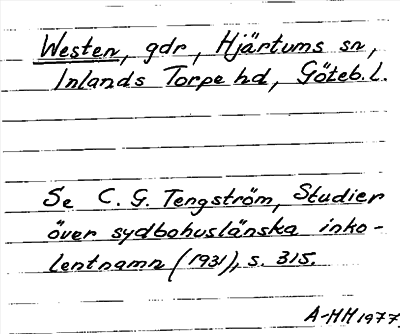 Westen, gdr, Hjärtums sn,
Inlands Torpe hd, Göteb. l.
Se C. G. Tengström, Studier
över sydbohuslänska inko-
lentnamn (1931), s. 315.
A-HH 1977.